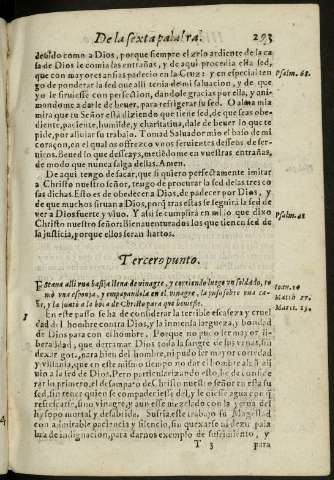 De la sexta palabra. 293
debido como a Dios, porque siempre el zelo ardiente de la ca
sa de Dios le comia las entrañas, y de aqui procedia esta sed,
que con mayores ansias padecio en la Cruz: y en especial ten
go de ponderar la sed que alli tenia de mi saluacion, y de que
yo le siruiesse con perfeccion, dandole gracias por ella, y ani-
mandome a darle de beuer, para refrigerar su sed. O alma mia
mira que tu Señor està diziendo que tiene sed, de que seas obe-
diente, paciente, humilde, y charitatiua, dale de beuer lo que te
pide, por aliuiar su trabajo. Tomad Saluador mio el baso de mi
coraçon, en el qual os ofrezco viuos deseos de ser-
uiros. Beued lo que desseays, metiẽdome en vuestras entrañas,
de modo que nunca salga dellas. Amen.
Psalm. 68.
De aqui tengo de sacar, que si quiero perfectamente imitar
a Christo nuestro señor, tengo de procurar la sed de las tres co
sas dichas. Esto es de obedecer a Dios, de padecer por Dios, y
de que muchos siruan a Dios, porq̃ tras estas se seguirà la sed de
ver a Dios fuerte y viuo. Y assi se cumplirà en mi lo que dixo
Christo nuestro señor: Bienauenturados los que tienen sed de
la justicia, porque ellos seran hartos.
Psalm. 41
Tercero punto.
Estaua alli vna basija llena de vinagre, y corriendo luego vn soldado, to
mò vna esponja, y empapandola en el vinagre, la puso sobre vna ca-
ña, y la juntò a la boca de Christo para que beuiesse.
Ioan. 19
Matth. 27.
Marc. 15.
1
En este passo se ha de considerar la terrible escaseza y cruel
dad del hombre contra Dios, y la inmensa largueza, y bondad
de Dios para con el hombre. Porque no pudo ser mayor li-
beralidad, que derramar Dios toda la sangre de sus venas, sin
dexar gota, para bien del hombre, ni pudo ser mayor cortedad
y villania, que en este mismo tiempo no dar el hombre algũ ali
uio a la sed de Dios. Pero particularizando esto, he de conside
rar lo primero, el desamparo de Christo nuestro señor en esta su
sed, sin tener quien se compadeciesse del, y le diesse agua con q̃
refrescarse, sino vinagre, y aun esse mezclado con la yerua del
hysopo mortal y desabrida. Sufria este trabajo su Magestad
con admirable paciencia y silencio, sin quexarse ni dezir pala
bra de indignacion, para darnos exemplo de sufrimiento, y
T 3 para